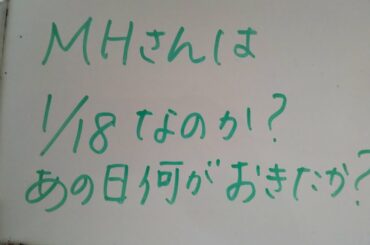 MHさんは
1/18なのか?
あの日何がおきたか?